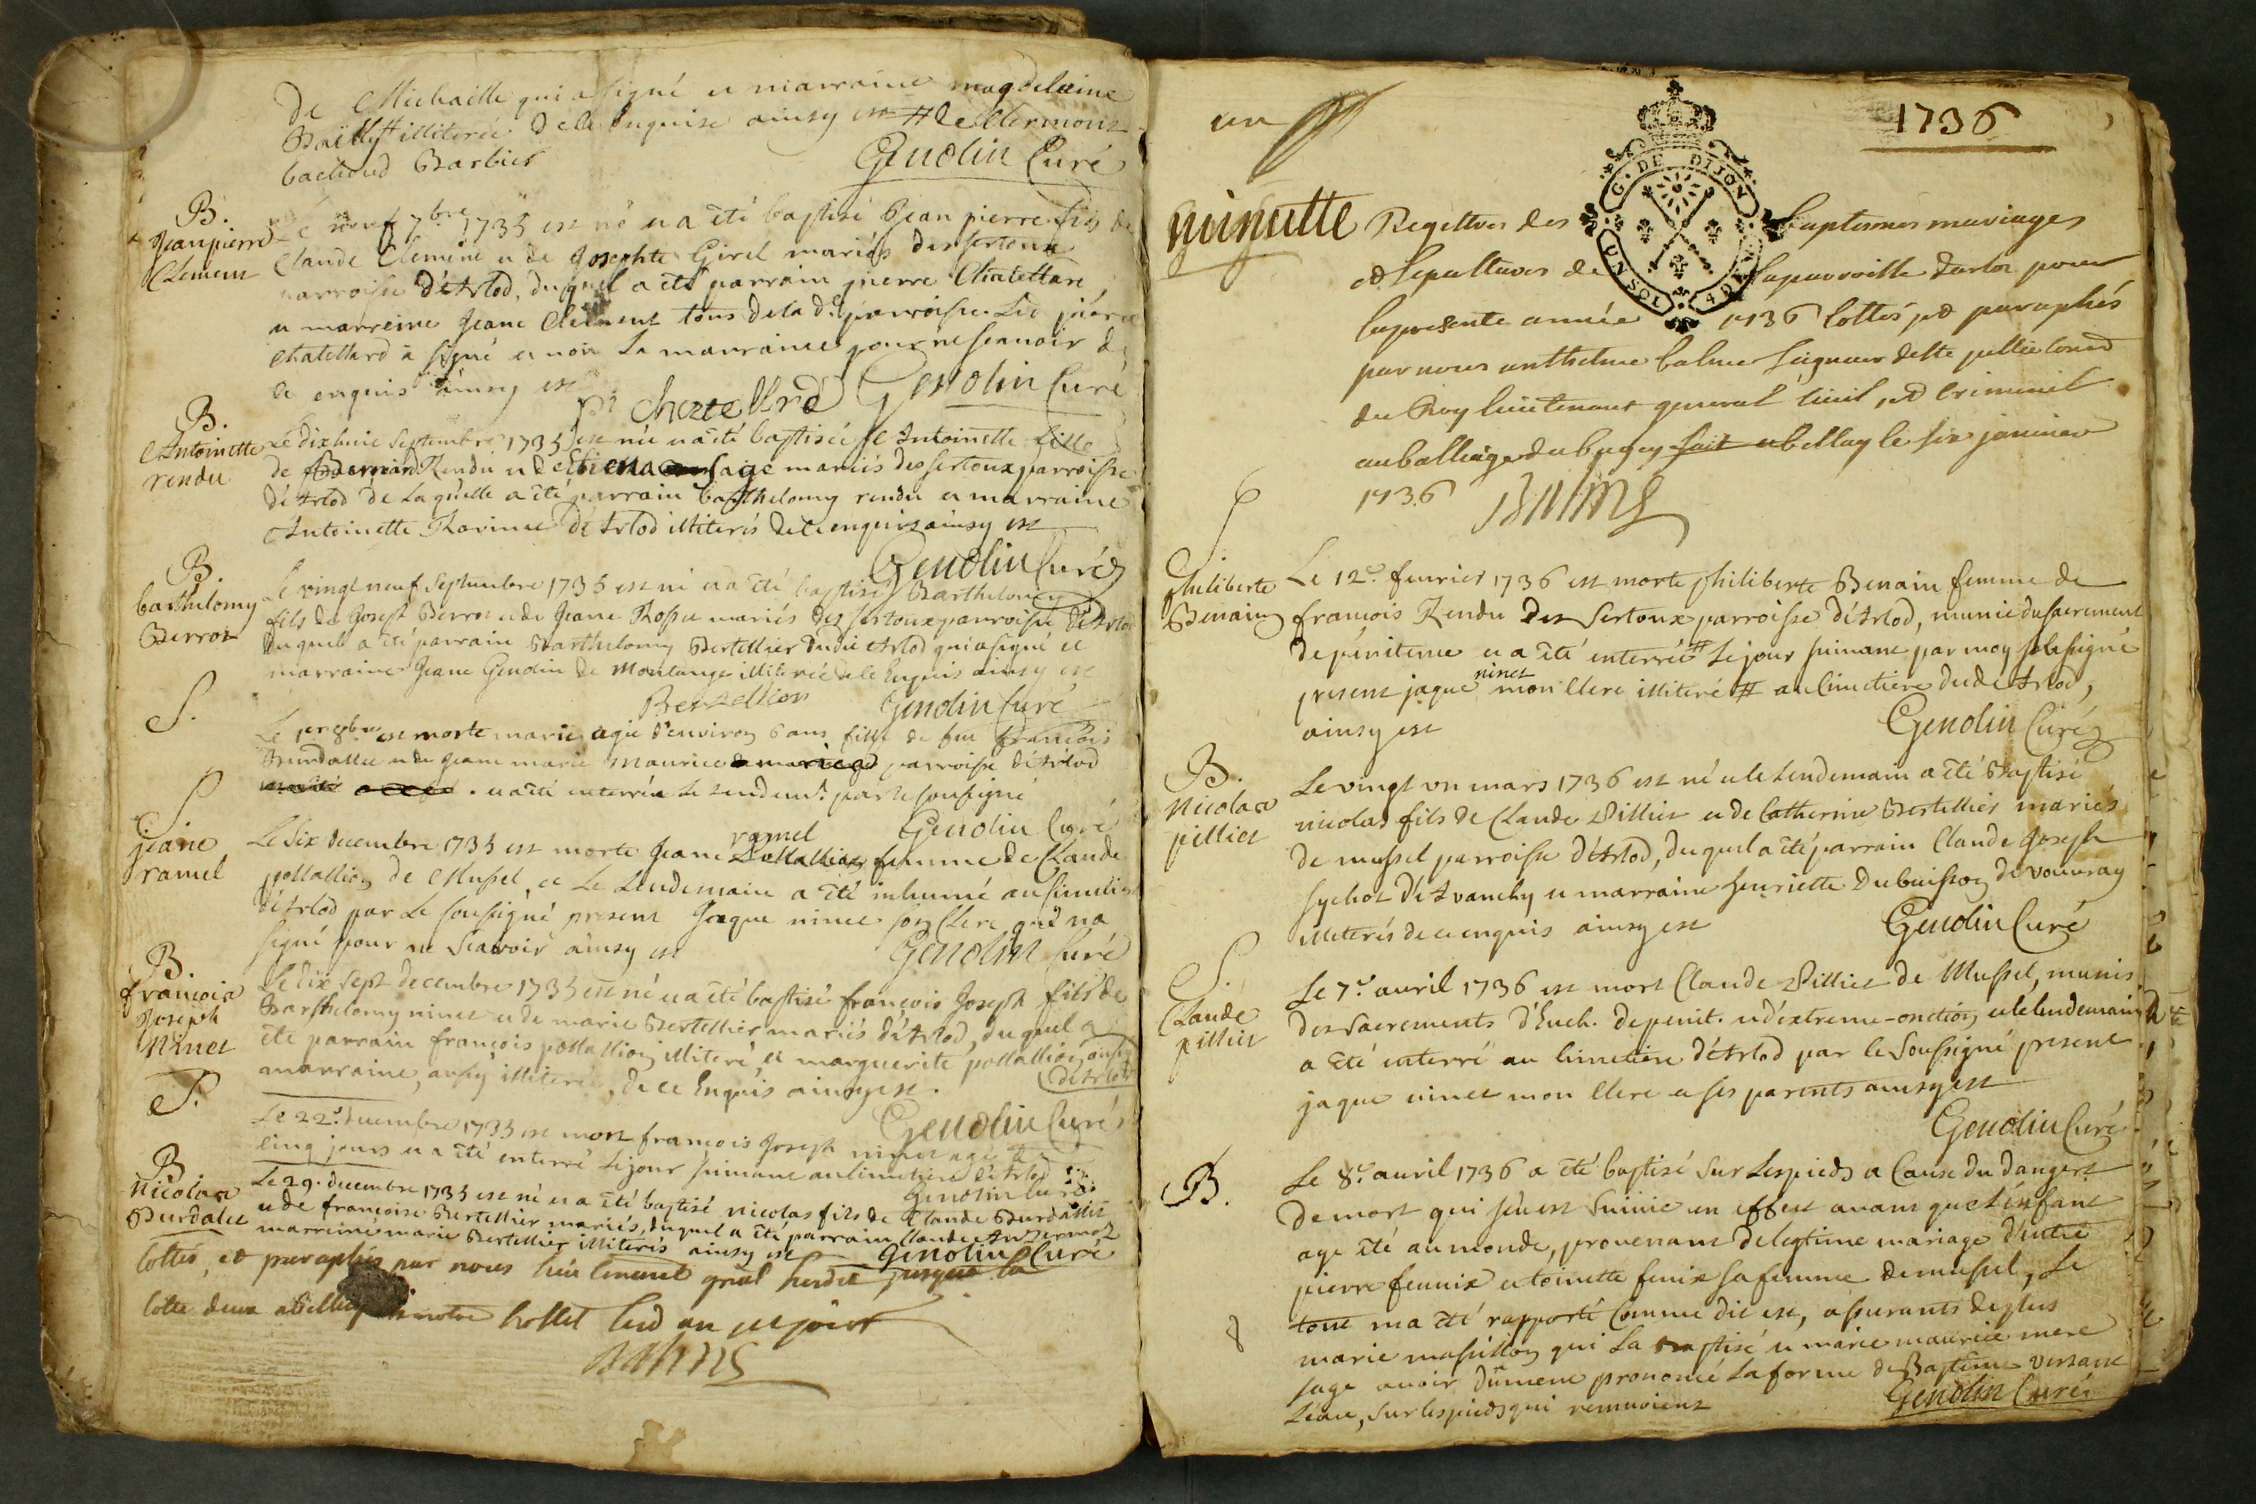 De Michaille qui a signé et marraine magdelaine
Bailly # illiterée De ce enquise ainsy est # de Clermont
bachoud Barbier
Genolin Curé
B.
Jean pierre
Clement
Le neuf 7bre 1735 est né et a été baptisé Jean pierre fils de
Claude Clement et de Josephte Girel mariés des sertoux
parroisse d'Arlod, duquel a été parrain pierre Chatellard,
et marreine Jeane Clement tous de la de parroisse Led pierre
Chatellard a signé et non La marraine pour ne scavoir de
ce enquis ainsy est
pr Chatellard Genolin Curé
B.
Antoinette
rendu
Le dixhuit Septembre 1735 est née et a été baptisée Antoinette fille
de Bernard Rendu et de sage mariés des sertoux parroisse
d'Arlod de Laquelle a été parrain Barthelomy rendu et marraine
Antoinette Ravinet d'Arlod illiterés de ce enquis ainsy est
Genolin Curé
B.
barthelomy
Berrod
Le vingt neuf Septembre 1735 est né et a été baptisé Barthelomy
fils de Joseph Berrod et de Jeane Rosset mariés des sertoux parroisse d'Arlod
duquel a été parrain Barthelomy Bertellier dudit Arlod qui a signé et
marraine Jeane Genolin de Montange illiterée de ce Enquis ainsy est
Bertellier Genolin Curé
S.
Le 1er 8bre est morte marie agée d'environ 6 ans fille de feu françois
Burdallet et de Jeane marie Maurice parroisse d'Arlod
et a été enterrée Le Lendemt. par le soussigné
Genolin Curé
S
jeane
ramel
Le Six decembre 1735 est morte Jeane ramel femme de Claude
pollallion de Mussel, et Le Lendemain a été inhumé au Cimetiere
d'Arlod par Le soussigné present Jaque ninet son Clerc qui na
signé pour ne Scavoir ainsy est
Genolin Curé
B.
françois
Joseph
Ninet
Le dix Sept decembre 1735 est né et a été baptisé françois Joseph fils de
Barthelomy ninet et de marie Bertellier mariés d'Arlod, duquel a
été parrain françois pollallion illiteré, et marguerite pollallion aussy
marraine, aussy illiterée, de ce Enquis ainsy est. d'Arlod
Genolin Curé
S.
Le 22e. decembre 1735 est mort françois Joseph ninet agé de
cinq jours et a été enterré Le jour suivant au cimetiere d'Arlod
Genolin Curé
B
Nicolas
Burdalet
Le 29. decembre 1735 est né et a été baptisé nicolas fils de Claude Burdallet
et de françoise Bertellier mariés, duquel a été parrain Claude
marreine marie Bertellier illiterés ainsy est Genolin Curé
Cottés, et paraphés par nous lieutenant gnal susdit jusque la
Cotte deux a Belley notre hostel led an jour
Balme
un
1736
G. DE DIJON
UN SOL 4 DEN
minutte Registres des baptesmes mariages
et Sepultures de la parroisse darlod pour
la presente année 1736 Cottés et paraphés
par nous anthelme balme seigneur de Ste jullie Conser
du Roy lieutenant general Civil et Criminel
au balliage du bugey fait a bellay le six janvier
1736
Balme
S
Philiberte
Benain
Le 12e. fevrier 1736 est morte philiberte Benain femme de
françois Rendu Des Sertoux parroisse d'Arlod, munie du sacrement
de pénitence et a été enterrée # Le jour suivant par moy soussigné
present jaque ninet mon Clerc illiteré # au Cimetiere dudt Arlod,
ainsy est
Genolin Curé
B.
Nicolas
pillier
Le vingt un mars 1736 est né et le Lendemain a été Baptisé
nicolas fils de Claude Pillier et de Catherine Bertellier mariés
de mussel parroisse d'Arlod, duquel a été parrain Claude Joseph
sychod d'Avanchy et marraine henriette Dubuisson de vouvray
illiterés de ce enquis ainsy est
Genolin Curé
S.
Claude
pillier
Le 7e. avril 1736 est mort Claude Pillier de Mussel, munis
des Sacrements d'Euch. de penit. et d'extreme-onction et le lendemain
a été enterré au cimetiere d'Arlod par le Soussigné present
jaque ninet mon Clerc et ses parents ainsy est
Genolin Curé
B.
Le 8e. avril 1736 a été baptisé Sur Les pieds a Cause du danger
De mort qui s'en est Suivie en effect avant que L'énfant
aye été au monde, provenant de legitime mariage d'Entre
pierre fennix et toinette fenix sa femme de mussel, Le
tout m'a été rapporté Comme dit est, assurants de plus
marie massillon qui La baptisé et marie maurice mere
sage avoir dûment prononcé La forme de Baptême versant
L'eau, Sur les pieds qui remuoient
Genolin Curé